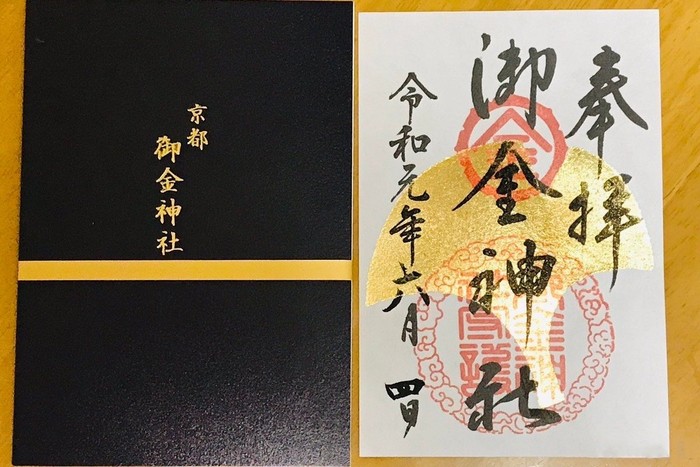 京都
御金神社
奉拝
御金神社
令和元年六月四日
金